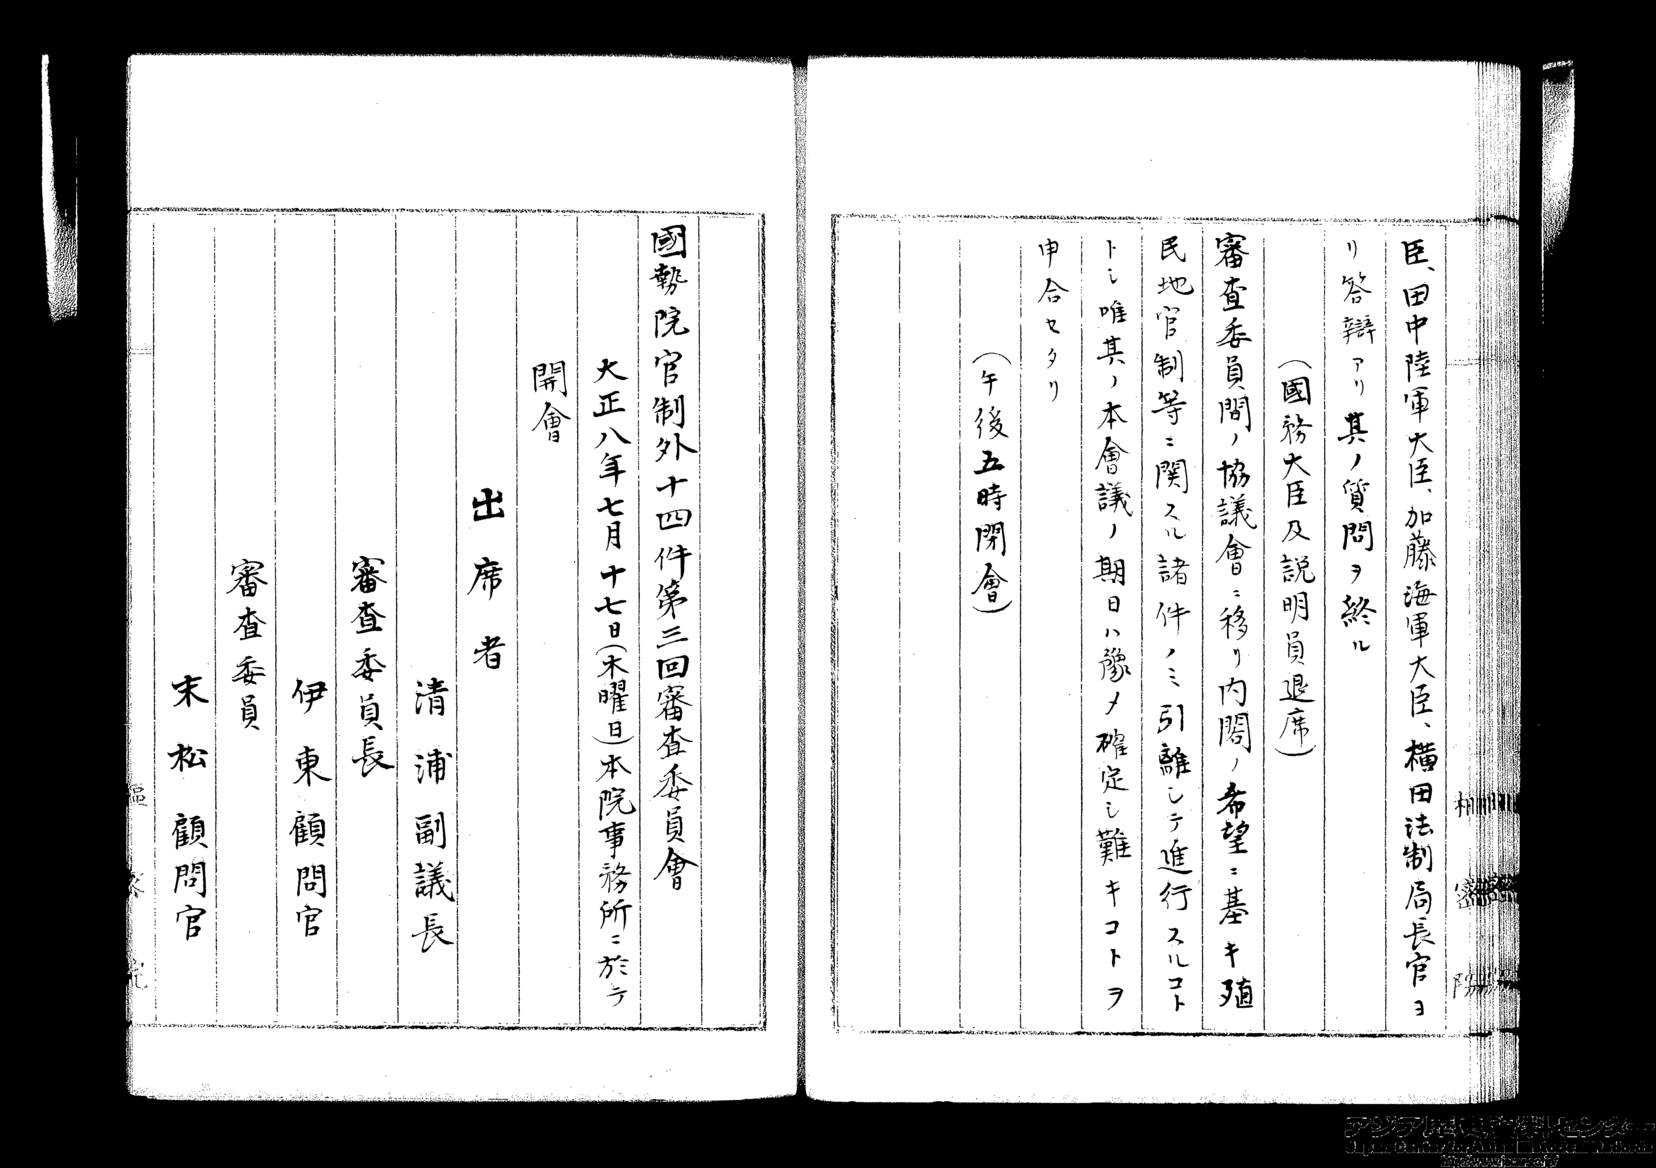 臣、田中陸軍大臣、加藤海軍大臣、横田法制局長官ヨ
リ答辯アリ其ノ質問ヲ終ル
(國務大臣及説明員退席)
審査委員間ノ協議會ニ移リ内閣ノ希望ニ基キ殖
民地官制等ニ関スル諸件ノミ引離シテ進行スルコト
トシ唯其ノ本會議ノ期日ハ豫メ確定シ難キコトヲ
申合セタリ
(午後五時閉會)
國勢院官制外十四件第三回審査委員會
大正八年七月十七日(木曜日)本院事務所ニ於テ
開會
出席者
清浦副議長
審査委員長
伊東顧問官
審査委員
末松顧問官